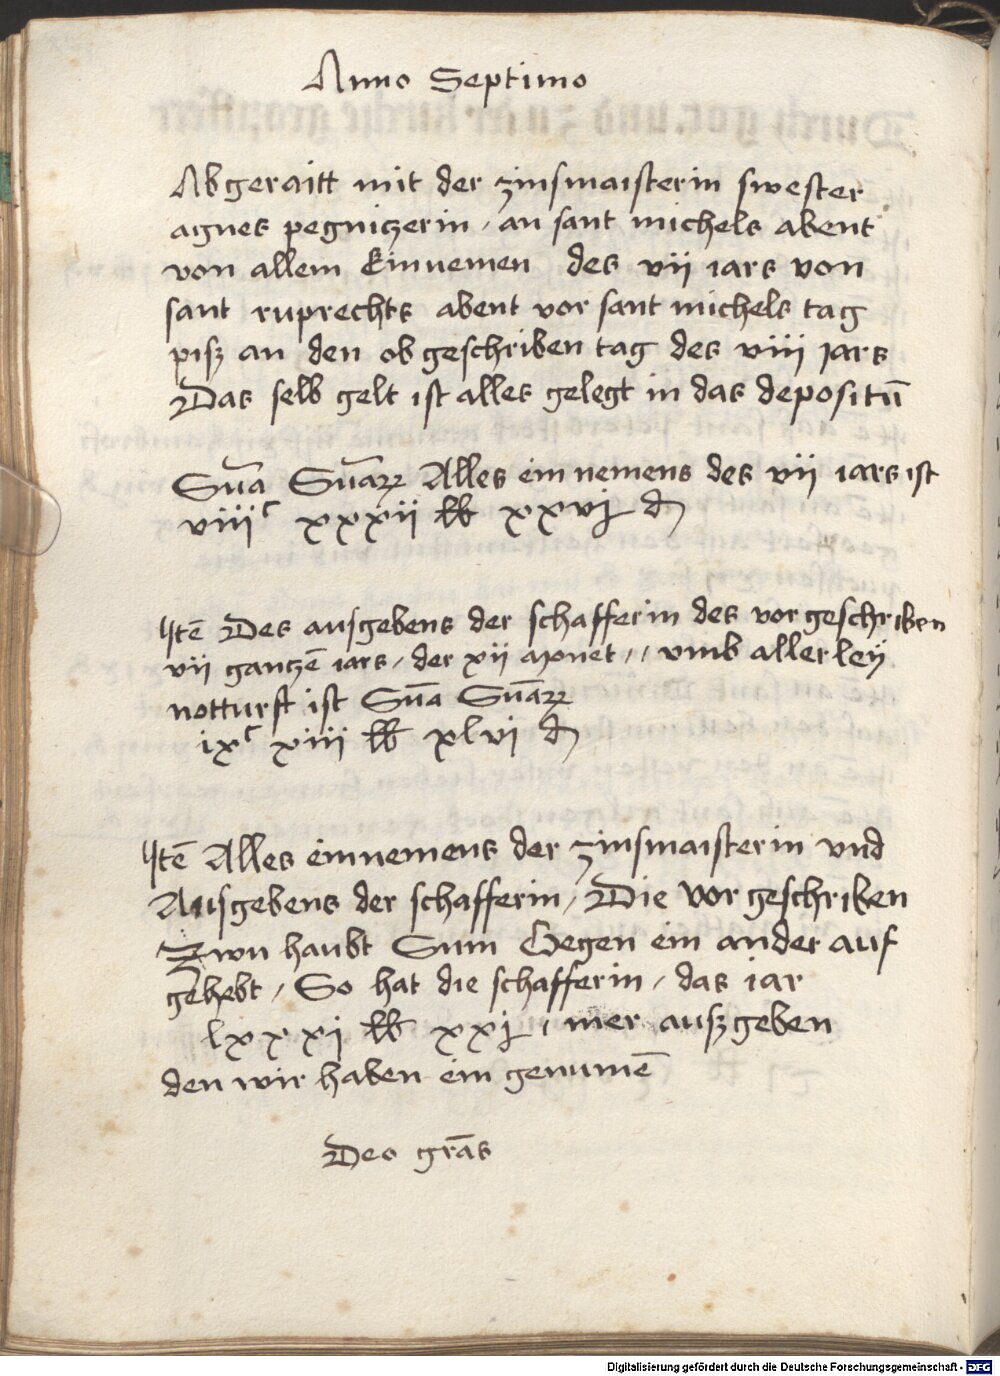 Anno Septimo
Abgeraitt mit der zinsmaisterin swester
agnes pegniczerin / an sant michels abent
von allem Einnemen des vij iars von
sant ruprechts abent vor sant michels tag
pisz an den obgeschriben tag des viij jars
Das selb gelt ist alles gelegt in das depositū
Sūa Sūarꝝ Alles einnemens des vij iars ist
viijᶜ xxxij lb xxvj d
Itē Des ausgebens der schafferin des vorgeschriben
vij ganczē iars / der xij monet // vmb allerley
notturft ist Sūa Sūarꝝ
ixᶜ xiij lb xlvj d
Itē Alles einnemens der zinsmaisterin vnd
Ausgebens der schafferin / Die vorgeschriben
Zwu haubt Sum Gegen ein ander auf
gehebt / So hat die schafferin / das iar
lxxxj lb xxj mer auszgeben
den wir haben ein genumē
Deo grās
Digitalisierung gefördert durch die Deutsche Forschungsgemeinschaft - DFG